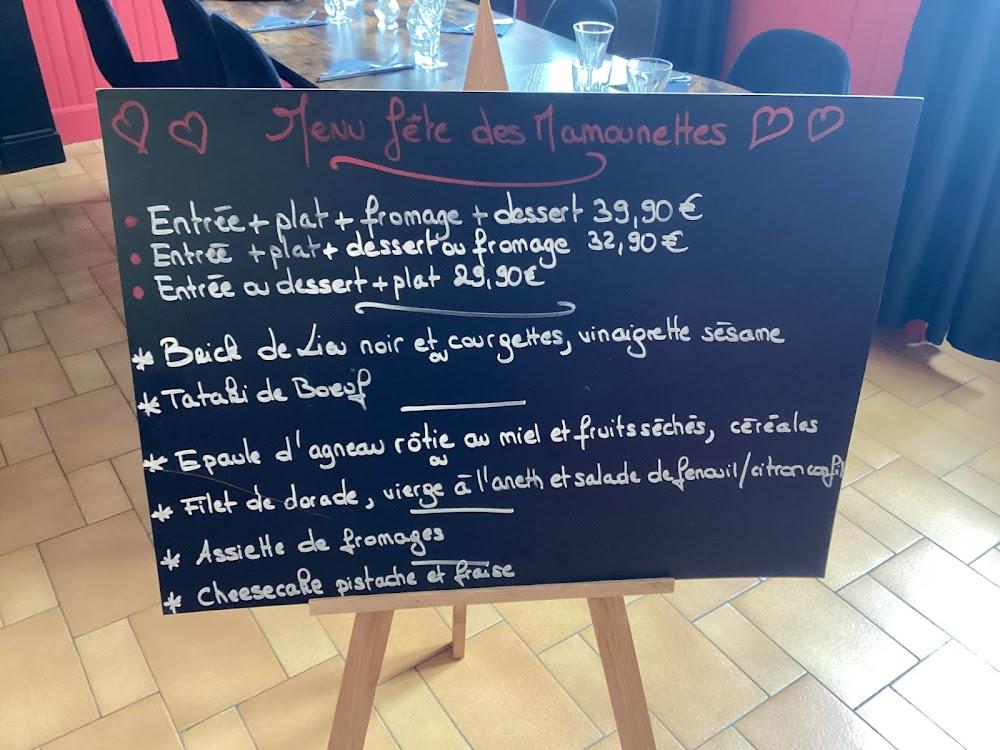 Menu fête des Mamounettes
• Entrée + plat + fromage + dessert 39,90 €
• Entrée + plat + dessert ou fromage 32,90 €
• Entrée ou dessert + plat 29,90 €
* Brick de Lieu noir et courgettes, vinaigrette sésame
ou
* Tataki de Boeuf
* Epaule d'agneau rôtie au miel et fruits séchés, céréales
ou
* Filet de dorade, vierge à l'aneth et salade de fenouil/citron confit
* Assiette de fromages
* Cheesecake pistache et fraise